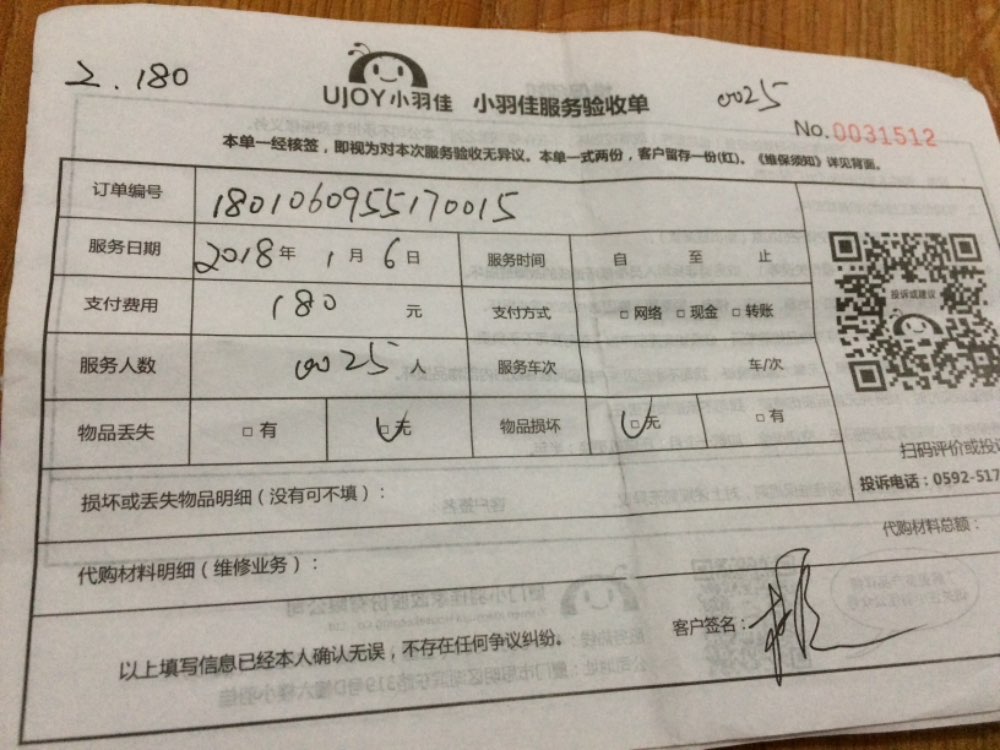 2.180
UJOY小羽佳 小羽佳服务验收单
0025
No.0031512
本单一经核签，即视为对本次服务验收无异议。本单一式两份，客户留存一份(红)。《维保须知》详见背面。
订单编号 1801060955170015
服务日期 2018年 1月 6日 服务时间 自 至 止
投诉或建议
支付费用 180 元 支付方式 □网络 □现金 □转账
服务人数 0025 人 服务车次 车/次
物品丢失 □有 □无 物品损坏 □无 □有
扫码评价或投诉
损坏或丢失物品明细（没有可不填）：
投诉电话：0592-517
代购材料总额：
代购材料明细（维修业务）：
客户签名：
以上填写信息已经本人确认无误，不存在任何争议纠纷。